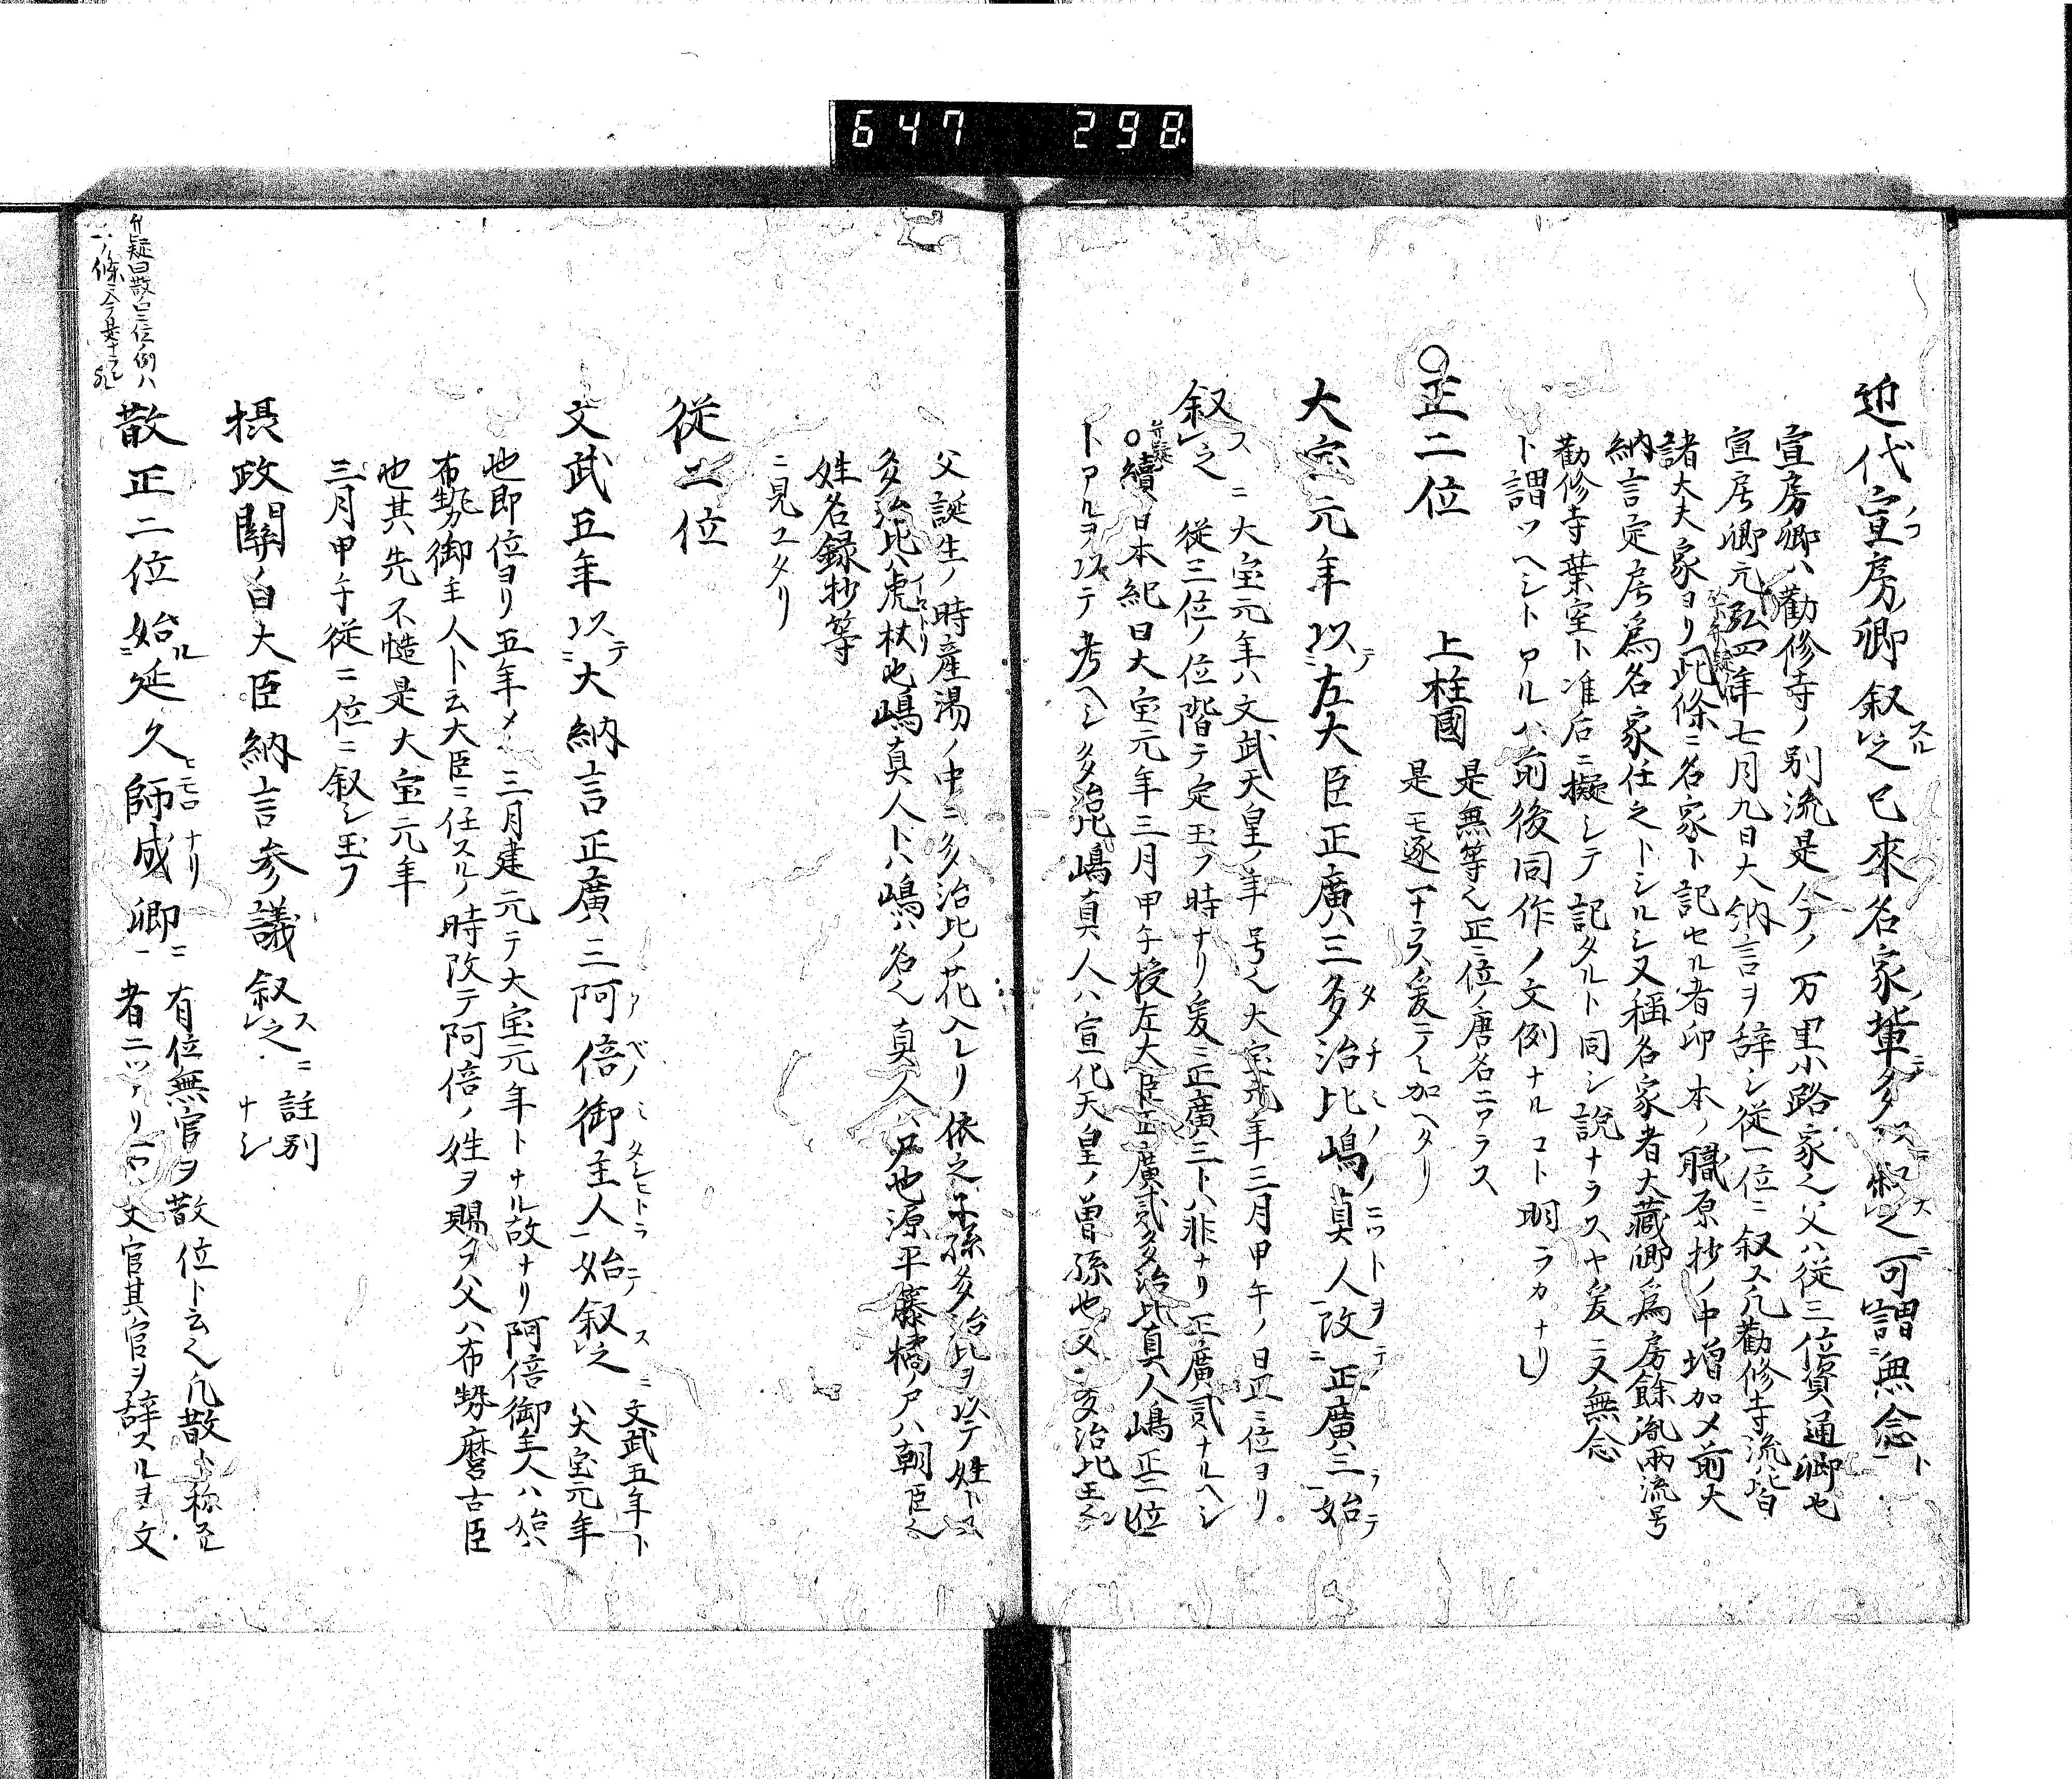 647 298
近代宣房卿叙之已來名家輩多叙之可謂無念
宣房卿ハ勸修寺ノ別流是今ノ万里小路家也父ハ從三位資通卿也
宣房卿元弘四年七月九日大納言ヲ辞シ從一位ニ叙ス凡勸修寺流皆
諸大夫家ヨリ此條ニ名家ト記セル者印本ノ職原抄ノ中増加〆前大
納言定房爲名家任之トシルシ又稱名家者大藏卿爲房餘流兩流号
勸修寺葉室ト准后ニ擬シテ記タルト同シ説ナラスヤ爰ニ又無念
ト謂ツヘシトアルハ前後同作ノ文例ナルコト明ラカナリ
○正二位 上柱國 是無等也正二位ノ唐名ニアラス
是モ逐一ナラス爰ニノミ加ヘタリ
大宝元年以左大臣正廣三多治比嶋真人改正廣三始
叙之 大宝元年ハ文武天皇ノ年号也大宝元年三月甲午ノ日正三位ヨリ
從三位ノ位階テ定玉フ時ナリ爰ニ正廣三トハ非ナリ正廣貳ナルヘシ
○續日本紀曰大宝元年三月甲午授左大臣正廣貳多治比真人嶋正二位
トアルヲ以テ考ヘシ多治比嶋真人ハ宣化天皇ノ曽孫也父ハ多治比王
父誕生ノ時産湯ノ中ニ多治比ノ花入レリ依之子孫多治比ヲ以テ姓トス
多治比ハ虎杖也嶋真人トハ嶋ハ名也真人ハ尸也源平藤橘ノ尸ハ朝臣也
姓名録抄等
ニ見エタリ
従二位
文武五年以大納言正廣三阿倍御主人始叙之 文武五年ト
ハ大宝元年
也即位ヨリ五年〆三月建元テ大宝元年トナル故ナリ阿倍御主人ハ始ハ
布勢御主人ト云大臣ニ任スルノ時改テ阿倍ノ姓ヲ賜ヲ父ハ布勢麿古臣
也其先不慥是大宝元年
三月甲午從二位ニ叙シ玉フ
摂政關白大臣納言参議叙之 註別
ニナシ
散正二位始延久師成卿 有位無官ヲ散位ト云也凡散ト称スル
者ニツアリ一ハ文官其官ヲ辞スルヲ文
弁疑曰散正三位ノ例ハ